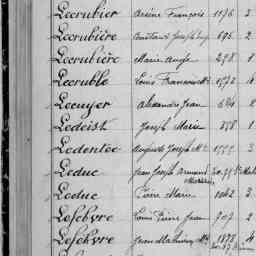 Lecrubier Arsène François 1176 3
Lecrubière Joseph 695 2.
Lecrubière Marie Ange 298 1
Lecruble Louis François 1572 4
Lecuyer Alexandre Jean 2
Ledeist Joseph Marie 1
Ledentec Auguste Joseph 3.
Leduc Jean Joseph Armand
Leduc Pierre Marie 1042 3.
Lefebvre Louis Pierre Jean 2
Lefebvre Jean Mathurin 1878 4